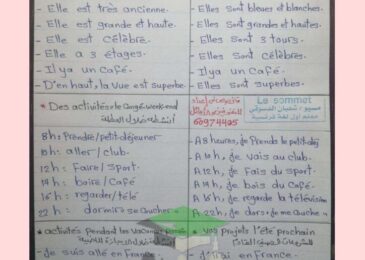 - Elle est très ancienne.
- Elle est grande et haute.
- Elle est Célèbre.
- Elle a 3 étages.
- Il ya un Café.
- D'en haut, la vue est superbe.
- Elles Sont bleues et blanches.
- Elles Sont grandes et hautes.
- Elles Sont 3 tours.
- Elles Sont Célèbres.
- Il ya un Café.
- Elles Sont Superbes.
* Des activités le Congé week-end
8h: Prendre/petit-déjeuner
10h: aller/club.
12h: Faire/Sport
14h: boire/Café
16h: regarder/télé
22h: dormir
Le sommet
60974425
A 8 heures, je Prends le petit-déj
A 10h, je vais au club.
A 12h, je Fais du sport.
A 14h, je bois du Café
A 16h, je regarde la télévision
A 22h, je dors
* activités pendant les Vacances
- Je suis allé en France
* Vos projets l'été prochain
- J'irai en France